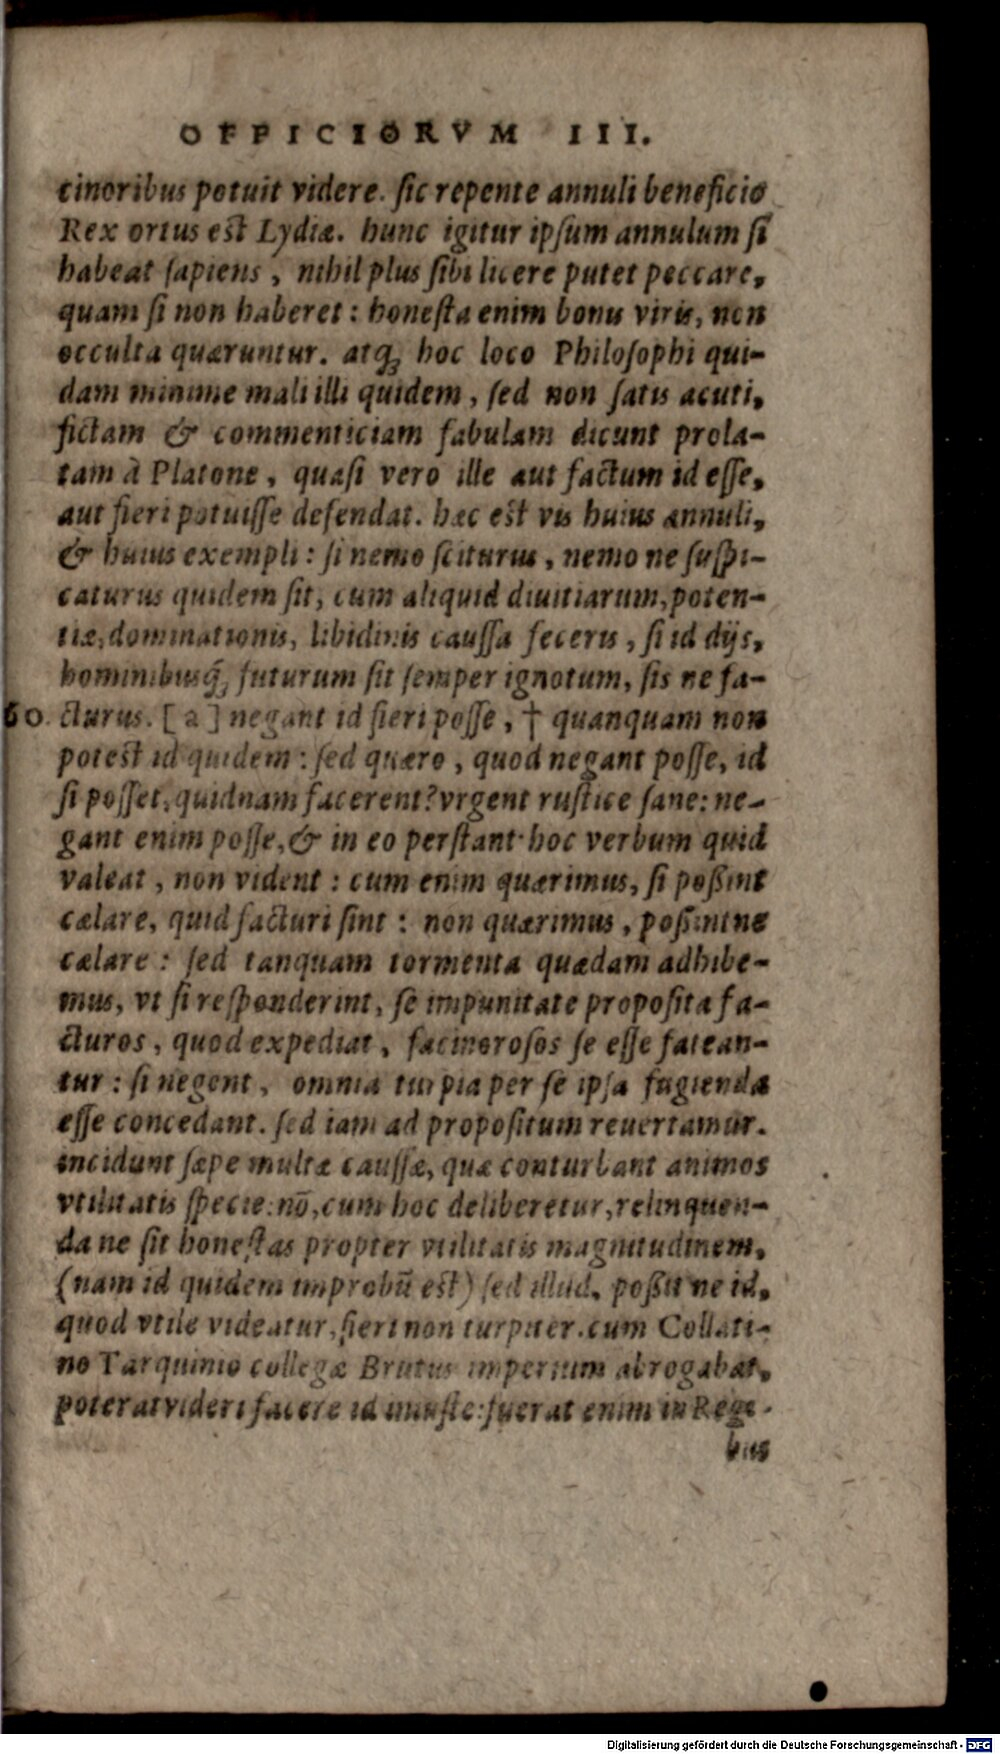 OFFICIORVM III.
cinoribus potuit videre. sic repente annuli beneficio
Rex ortus est Lydiæ. hunc igitur ipsum annulum si
habeat sapiens, nihil plus sibi licere putet peccare,
quam si non haberet: honesta enim bonis viris, non
occulta quæruntur. atq; hoc loco Philosophi qui-
dam minime mali illi quidem, sed non satis acuti,
fictam & commenticiam fabulam dicunt prola-
tam à Platone, quasi vero ille aut factum id esse,
aut fieri potuisse defendat. hæc est vis huius annuli,
& huius exempli: si nemo sciturus, nemo ne suspi-
caturus quidem sit, cum aliquid diuitiarum, poten-
tiæ, dominationis, libidinis caussa feceris, si id dijs,
hominibusq́; futurum sit semper ignotum, sis ne fa-
60. cturus. [a] negant id fieri posse, † quanquam non
potest id quidem: sed quæro, quod negant posse, id
si posset, quidnam facerent? vrgent rustice sane: ne-
gant enim posse, & in eo perstant· hoc verbum quid
valeat, non vident: cum enim quærimus, si poßint
cælare, quid facturi sint: non quærimus, poßintne
cælare: sed tanquam tormenta quædam adhibe-
mus, vt si responderint, se impunitate proposita fa-
cturos, quod expediat, facinorosos se esse fatean-
tur: si negent, omnia turpia per se ipsa fugienda
esse concedant. sed iam ad propositum reuertamur.
incidunt sæpe multæ caussæ, quæ conturbant animos
vtilitatis specie: nō, cum hoc deliberetur, relinquen-
da ne sit honestas propter vtilitatis magnitudinem,
(nam id quidem improbū est) sed illud, poßit ne id,
quod vtile videatur, fieri non turpiter. cum Collati-
no Tarquinio collegæ Brutus imperium abrogabat,
poterat videri facere id iniuste: fuerat enim in Regi-
bus
Digitalisierung gefördert durch die Deutsche Forschungsgemeinschaft - DFG